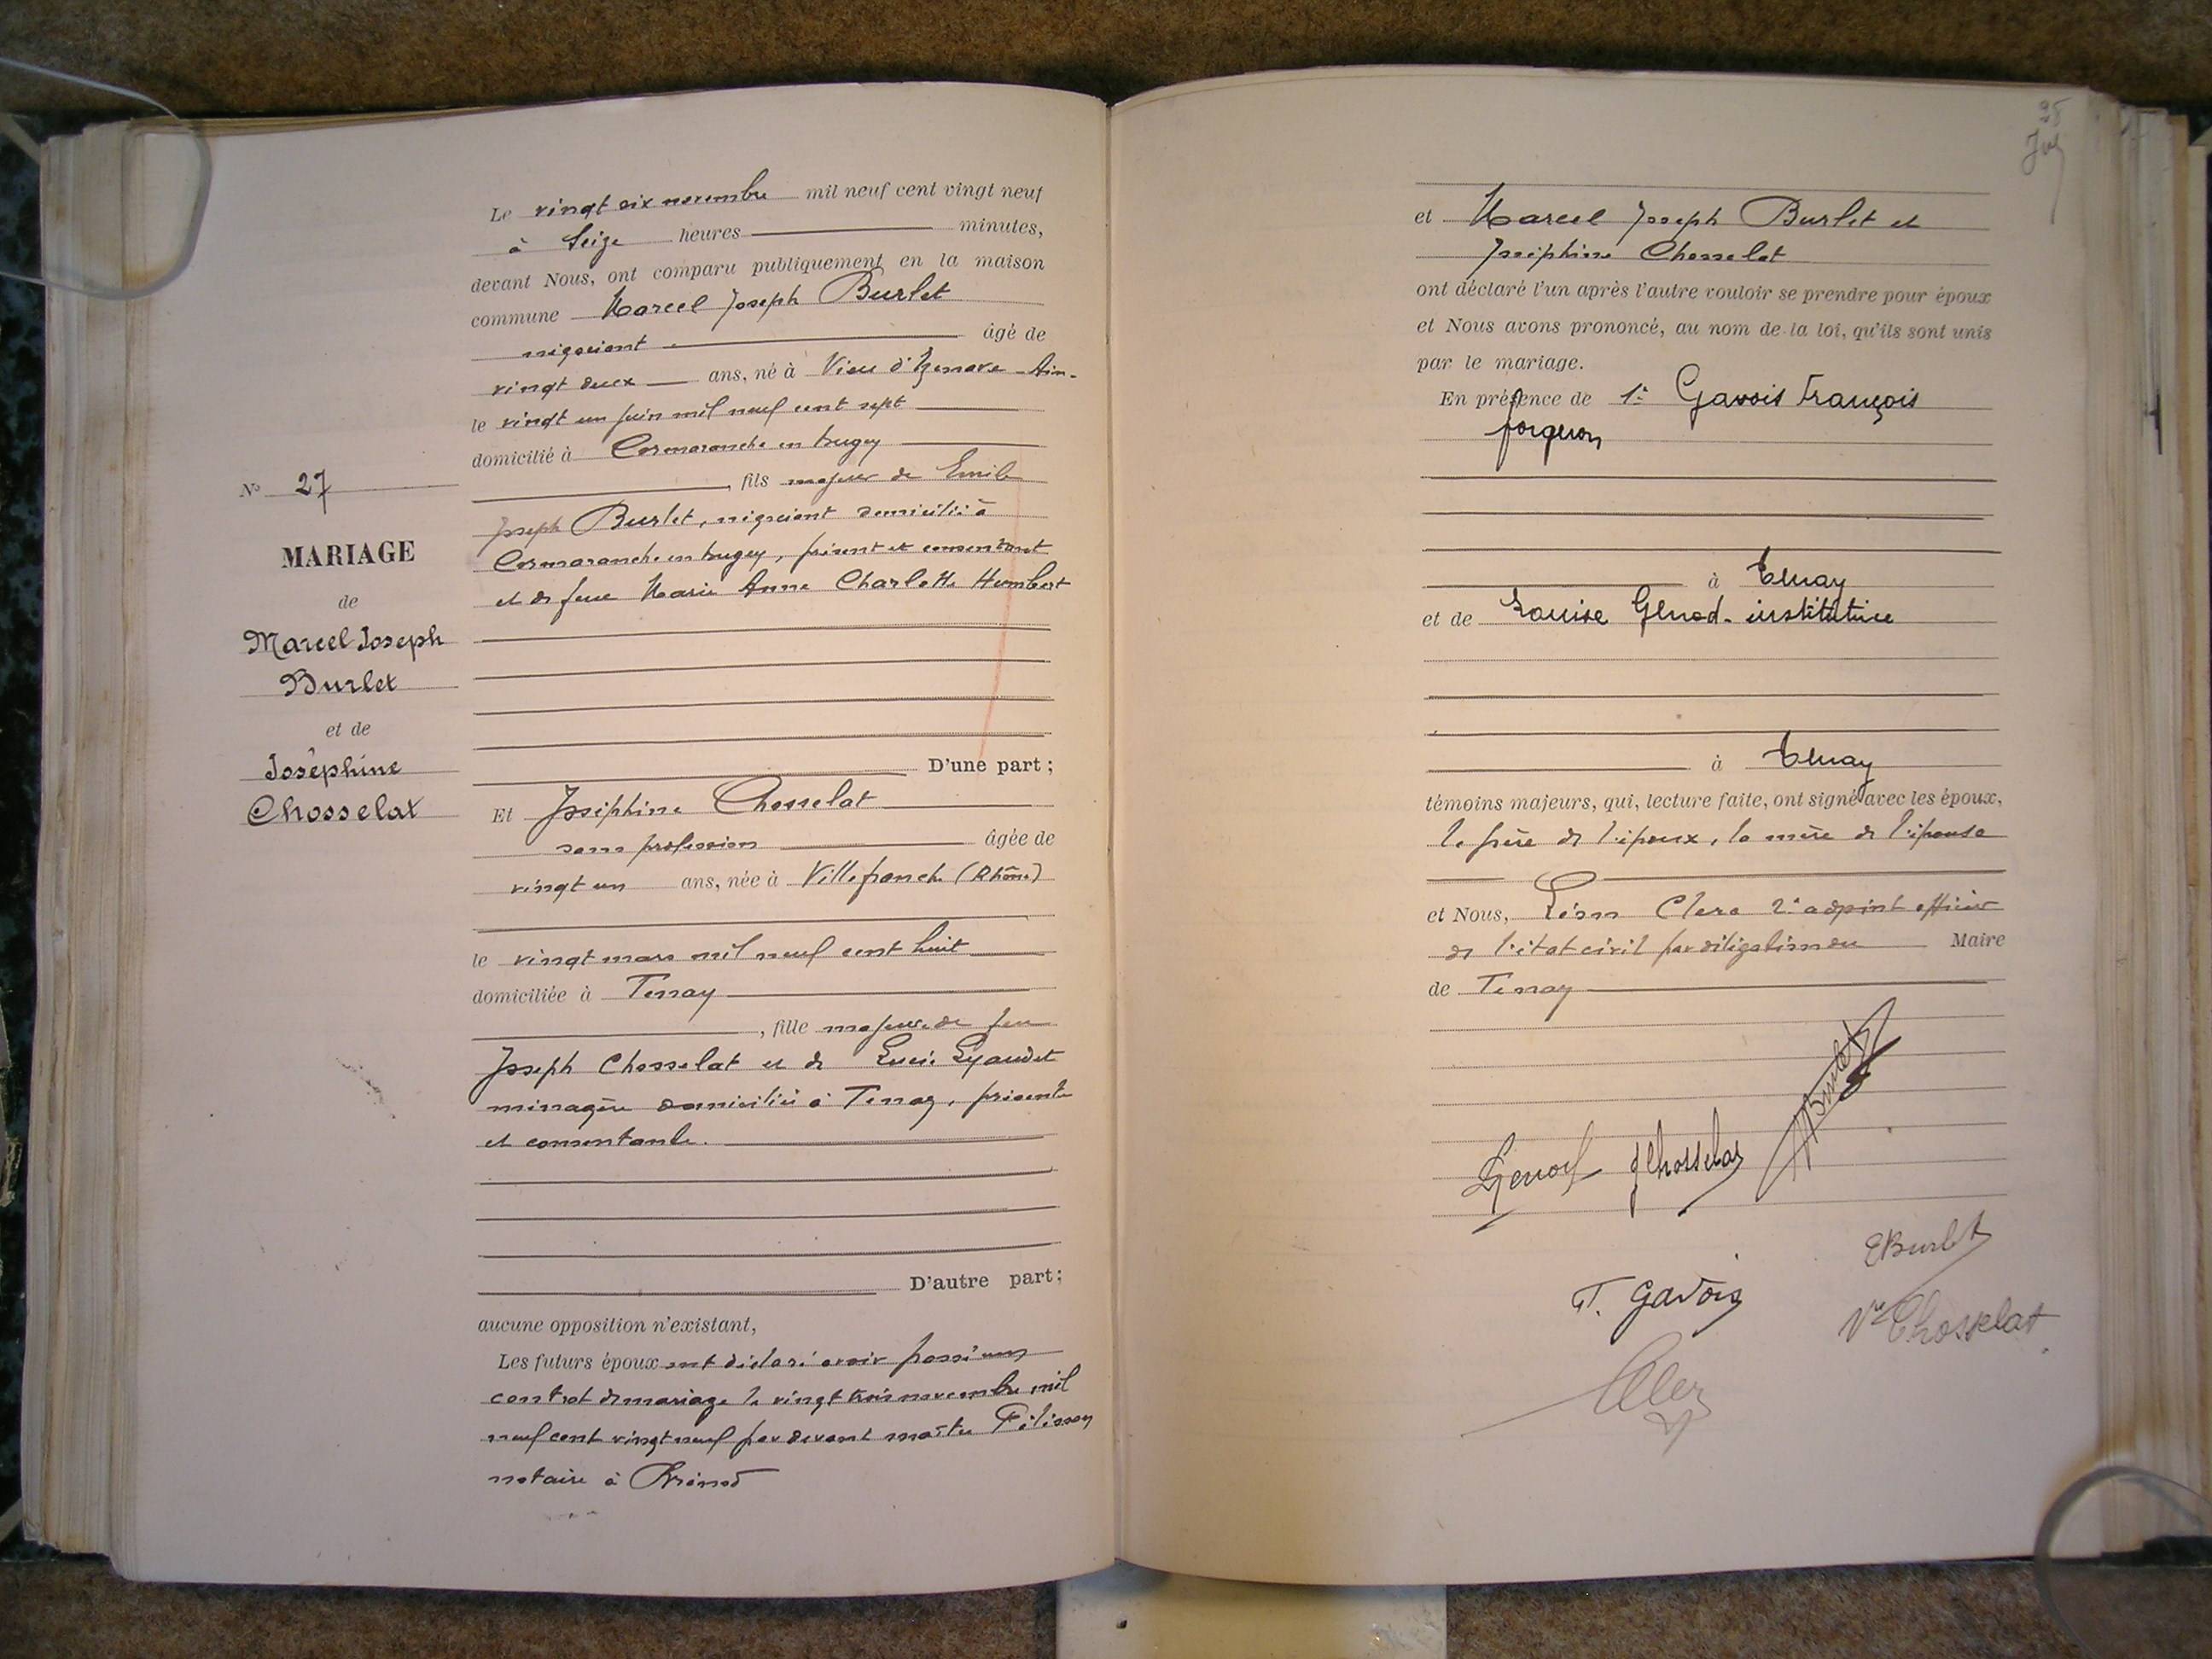 N° 27
MARIAGE
de
Marcel Joseph
Burlet
et de
Joséphine
Chosselat
Le vingt six novembre mil neuf cent vingt neuf
à Seize heures minutes,
devant Nous, ont comparu publiquement en la maison
commune Marcel Joseph Burlet
négociant âgé de
vingt deux ans, né à Vieu d'Izenave - Ain -
le vingt un juin mil neuf cent sept
domicilié à Cormaranche en bugey
, fils majeur de Emile
Joseph Burlet, négociant domicilié à
Cormaranche en bugey, présent et consentant
et de feue Marie Anne Charlotte Humbert
D'une part;
Et Joséphine Chosselat
sans profession âgée de
vingt un ans, née à Villefranche (Rhône)
le vingt mars mil neuf cent huit
domiciliée à Tenay
, fille majeure de feu
Joseph Chosselat et de Lucie Lyaudet
ménagère domiciliée à Tenay, présente
et consentante.
D'autre part;
aucune opposition n'existant,
Les futurs époux ont déclaré avoir passé un
contrat de mariage le vingt trois novembre mil
neuf cent vingt neuf par devant maître Pélisson
notaire à Brénod
25
et Marcel Joseph Burlet et
Joséphine Chosselat
ont déclaré l'un après l'autre vouloir se prendre pour époux
et Nous avons prononcé, au nom de la loi, qu'ils sont unis
par le mariage.
En présence de 1° Gavois François
forgeron
à Tenay
et de Louise Genod - institutrice
à Tenay
témoins majeurs, qui, lecture faite, ont signé avec les époux,
le père de l'époux, la mère de l'épouse
et Nous, Léon Clerc 2e adjoint officier
de l'état civil par délégation du Maire
de Tenay
LGenod JChosselat MBurlet
EBurlet
F. Gavois
Vve Chosselat.